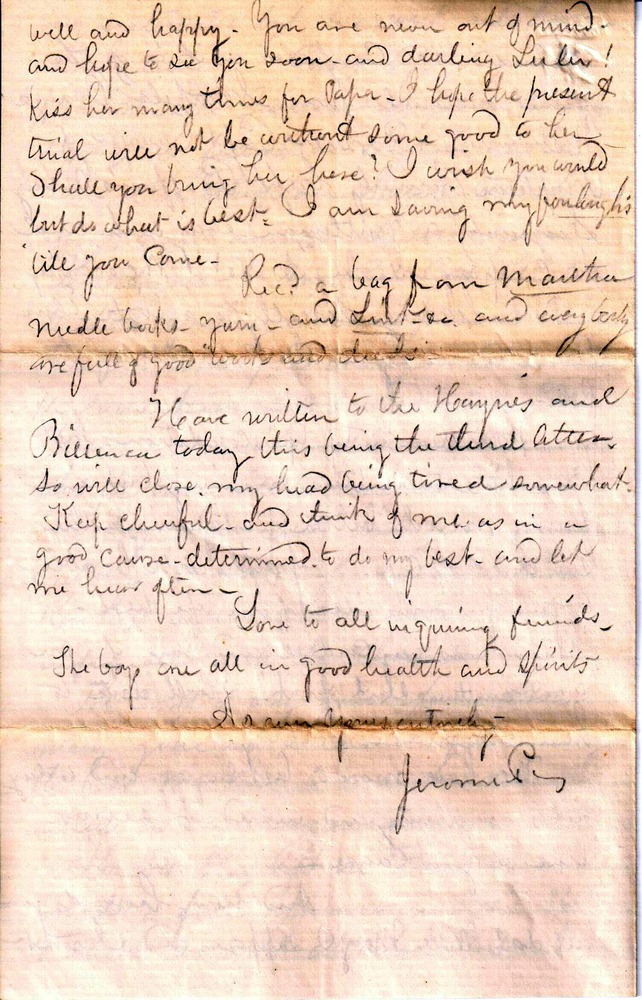 well and happy - You are never out of mind -
and hope to see you soon - and darling Lulu!
Kiss her many times for Papa - I hope the present
trial will not be without some good to her
Shall you bring her here? I wish you would
but do what is best. I am saving my
'till you Come -
Rec'd a bag from Martha
needle books - yarn - and Lint - &c. and everybody
are full of good works and deeds -
Have written to the Haynes and
Billerica today, this being the third
so will close, my head being tired somewhat -
Keep cheerful - and think of me as in a
good cause - determined to do my best - and let
me hear often -
Love to all inquiring friends -
The boys are all in good health and spirits
As ever yours entirely -
Jerome